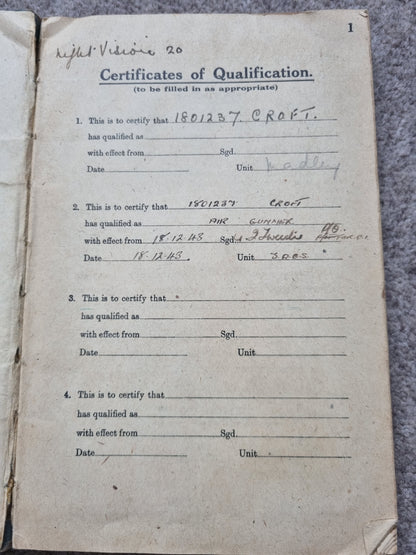 1
Night Vision 20
Certificates of Qualification.
(to be filled in as appropriate)
1. This is to certify that 1801237. CROFT.
has qualified as
with effect from Sgd.
Date Unit Madley
2. This is to certify that 1801237 CROFT
has qualified as AIR GUNNER
with effect from 18.12.43 Sgd.
Date 18.12.43. Unit
3. This is to certify that
has qualified as
with effect from Sgd.
Date Unit
4. This is to certify that
has qualified as
with effect from Sgd.
Date Unit